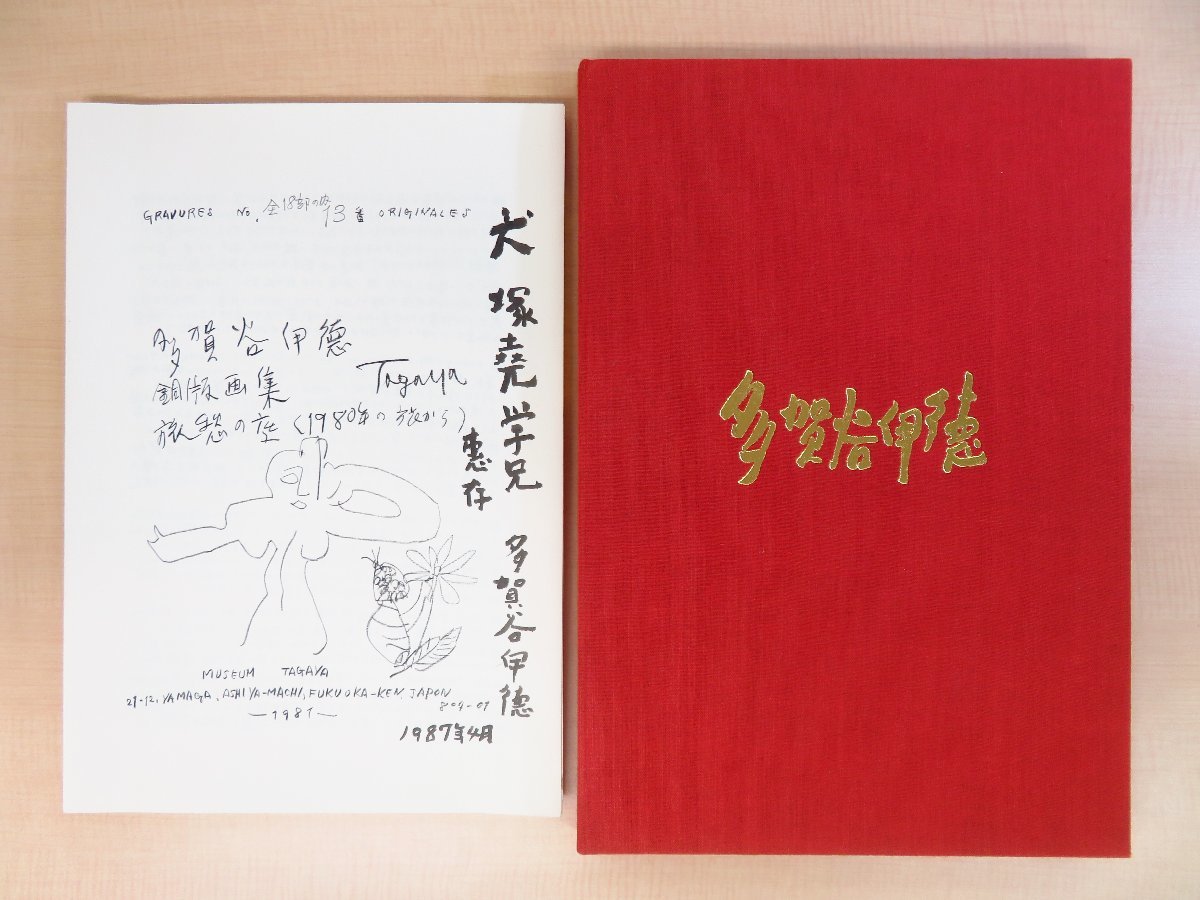 GRAVURES No. 全18部の内 13番 ORIGINALES
多賀谷伊徳
Tagaya
銅版画集
旅愁の座(1980年の旅から)
MUSEUM TAGAYA
21-12, YAMAGA, ASHIYA-MACHI, FUKUOKA-KEN, JAPON
809-01
—1981—
犬塚堯学兄
恵存
多賀谷伊徳
1987年4月
多賀谷伊徳